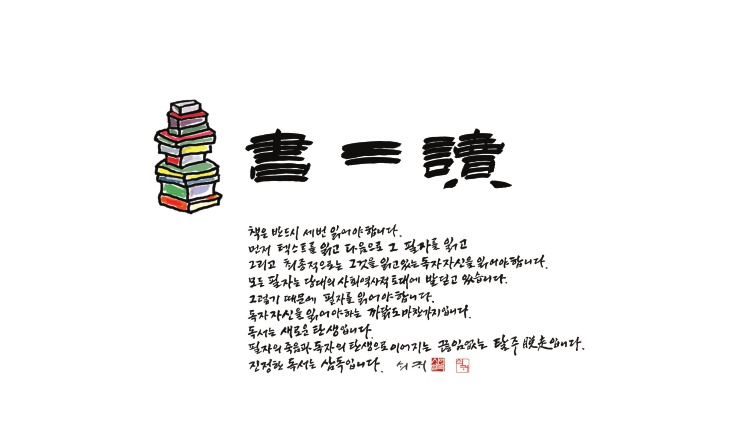 書三讀
책은 반드시 세번 읽어야 합니다.
먼저 텍스트를 읽고 다음으로 그 필자를 읽고
그리고 최종적으로는 그것을 읽고있는 독자 자신을 읽어야 합니다.
모든 필자는 당대의 사회역사적 토대에 발 딛고 있습니다.
그렇기 때문에 필자를 읽어야 합니다.
독자 자신을 읽어야 하는 까닭도 마찬가지입니다.
독서는 새로운 탄생입니다.
필자의 죽음과 독자의 탄생으로 이어지는 끊임없는 탈주 脫走입니다.
진정한 독서는 삼독입니다. 쇠귀